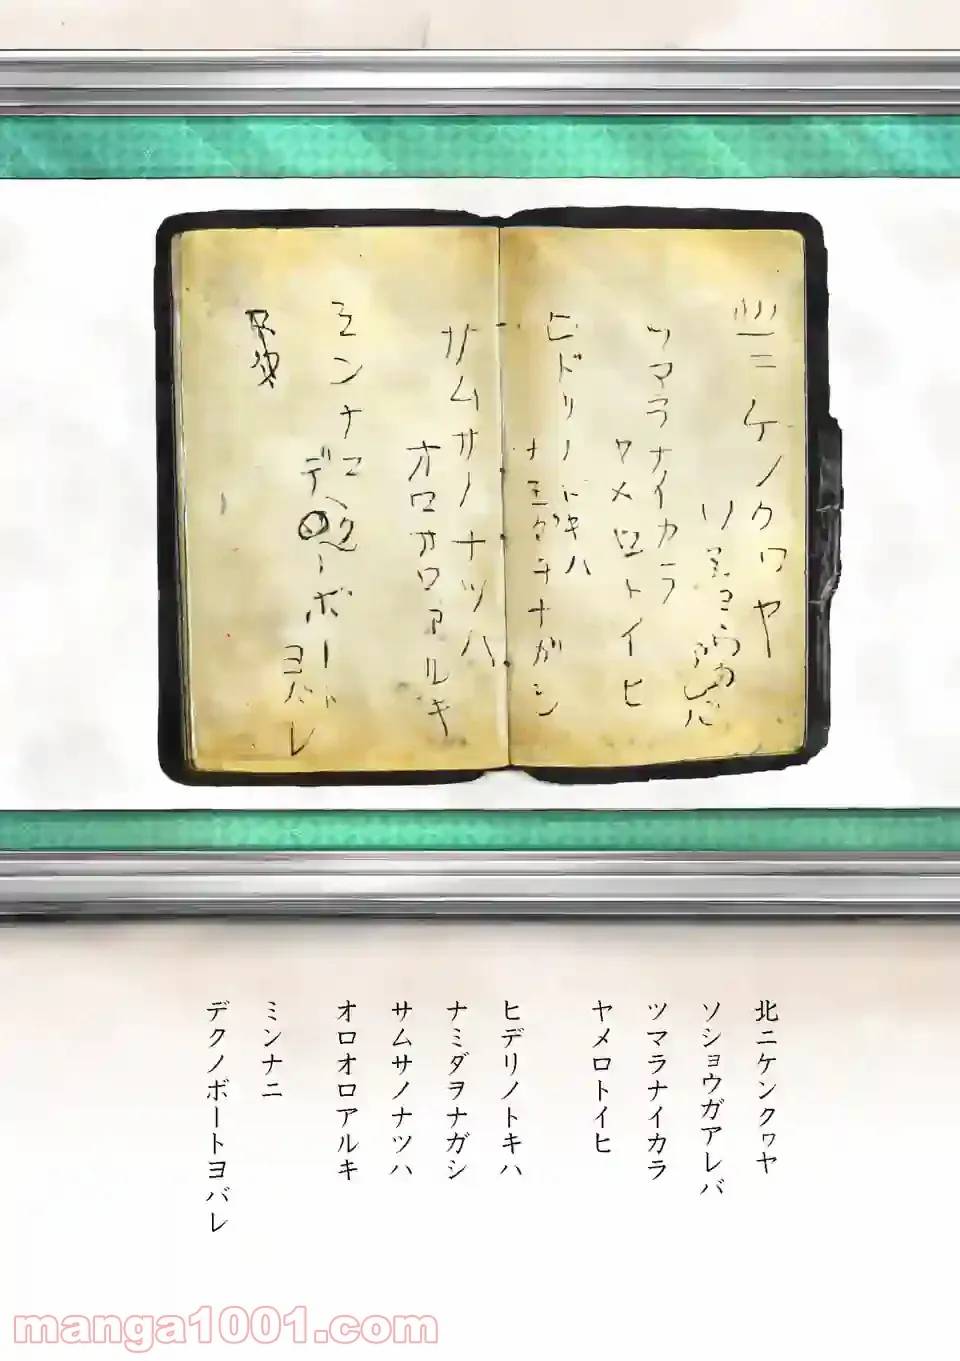 北ニケンクヮヤ
ソショウガアレバ
ツマラナイカラ
ヤメロトイヒ
ヒドリノトキハ
ナミダヲナガシ
サムサノナツハ
オロオロアルキ
ミンナニ
デクノボー
ヨバレ
北ニケンクヮヤ
ソショウガアレバ
ツマラナイカラ
ヤメロトイヒ
ヒデリノトキハ
ナミダヲナガシ
サムサノナツハ
オロオロアルキ
ミンナニ
デクノボートヨバレ
manga1001.com